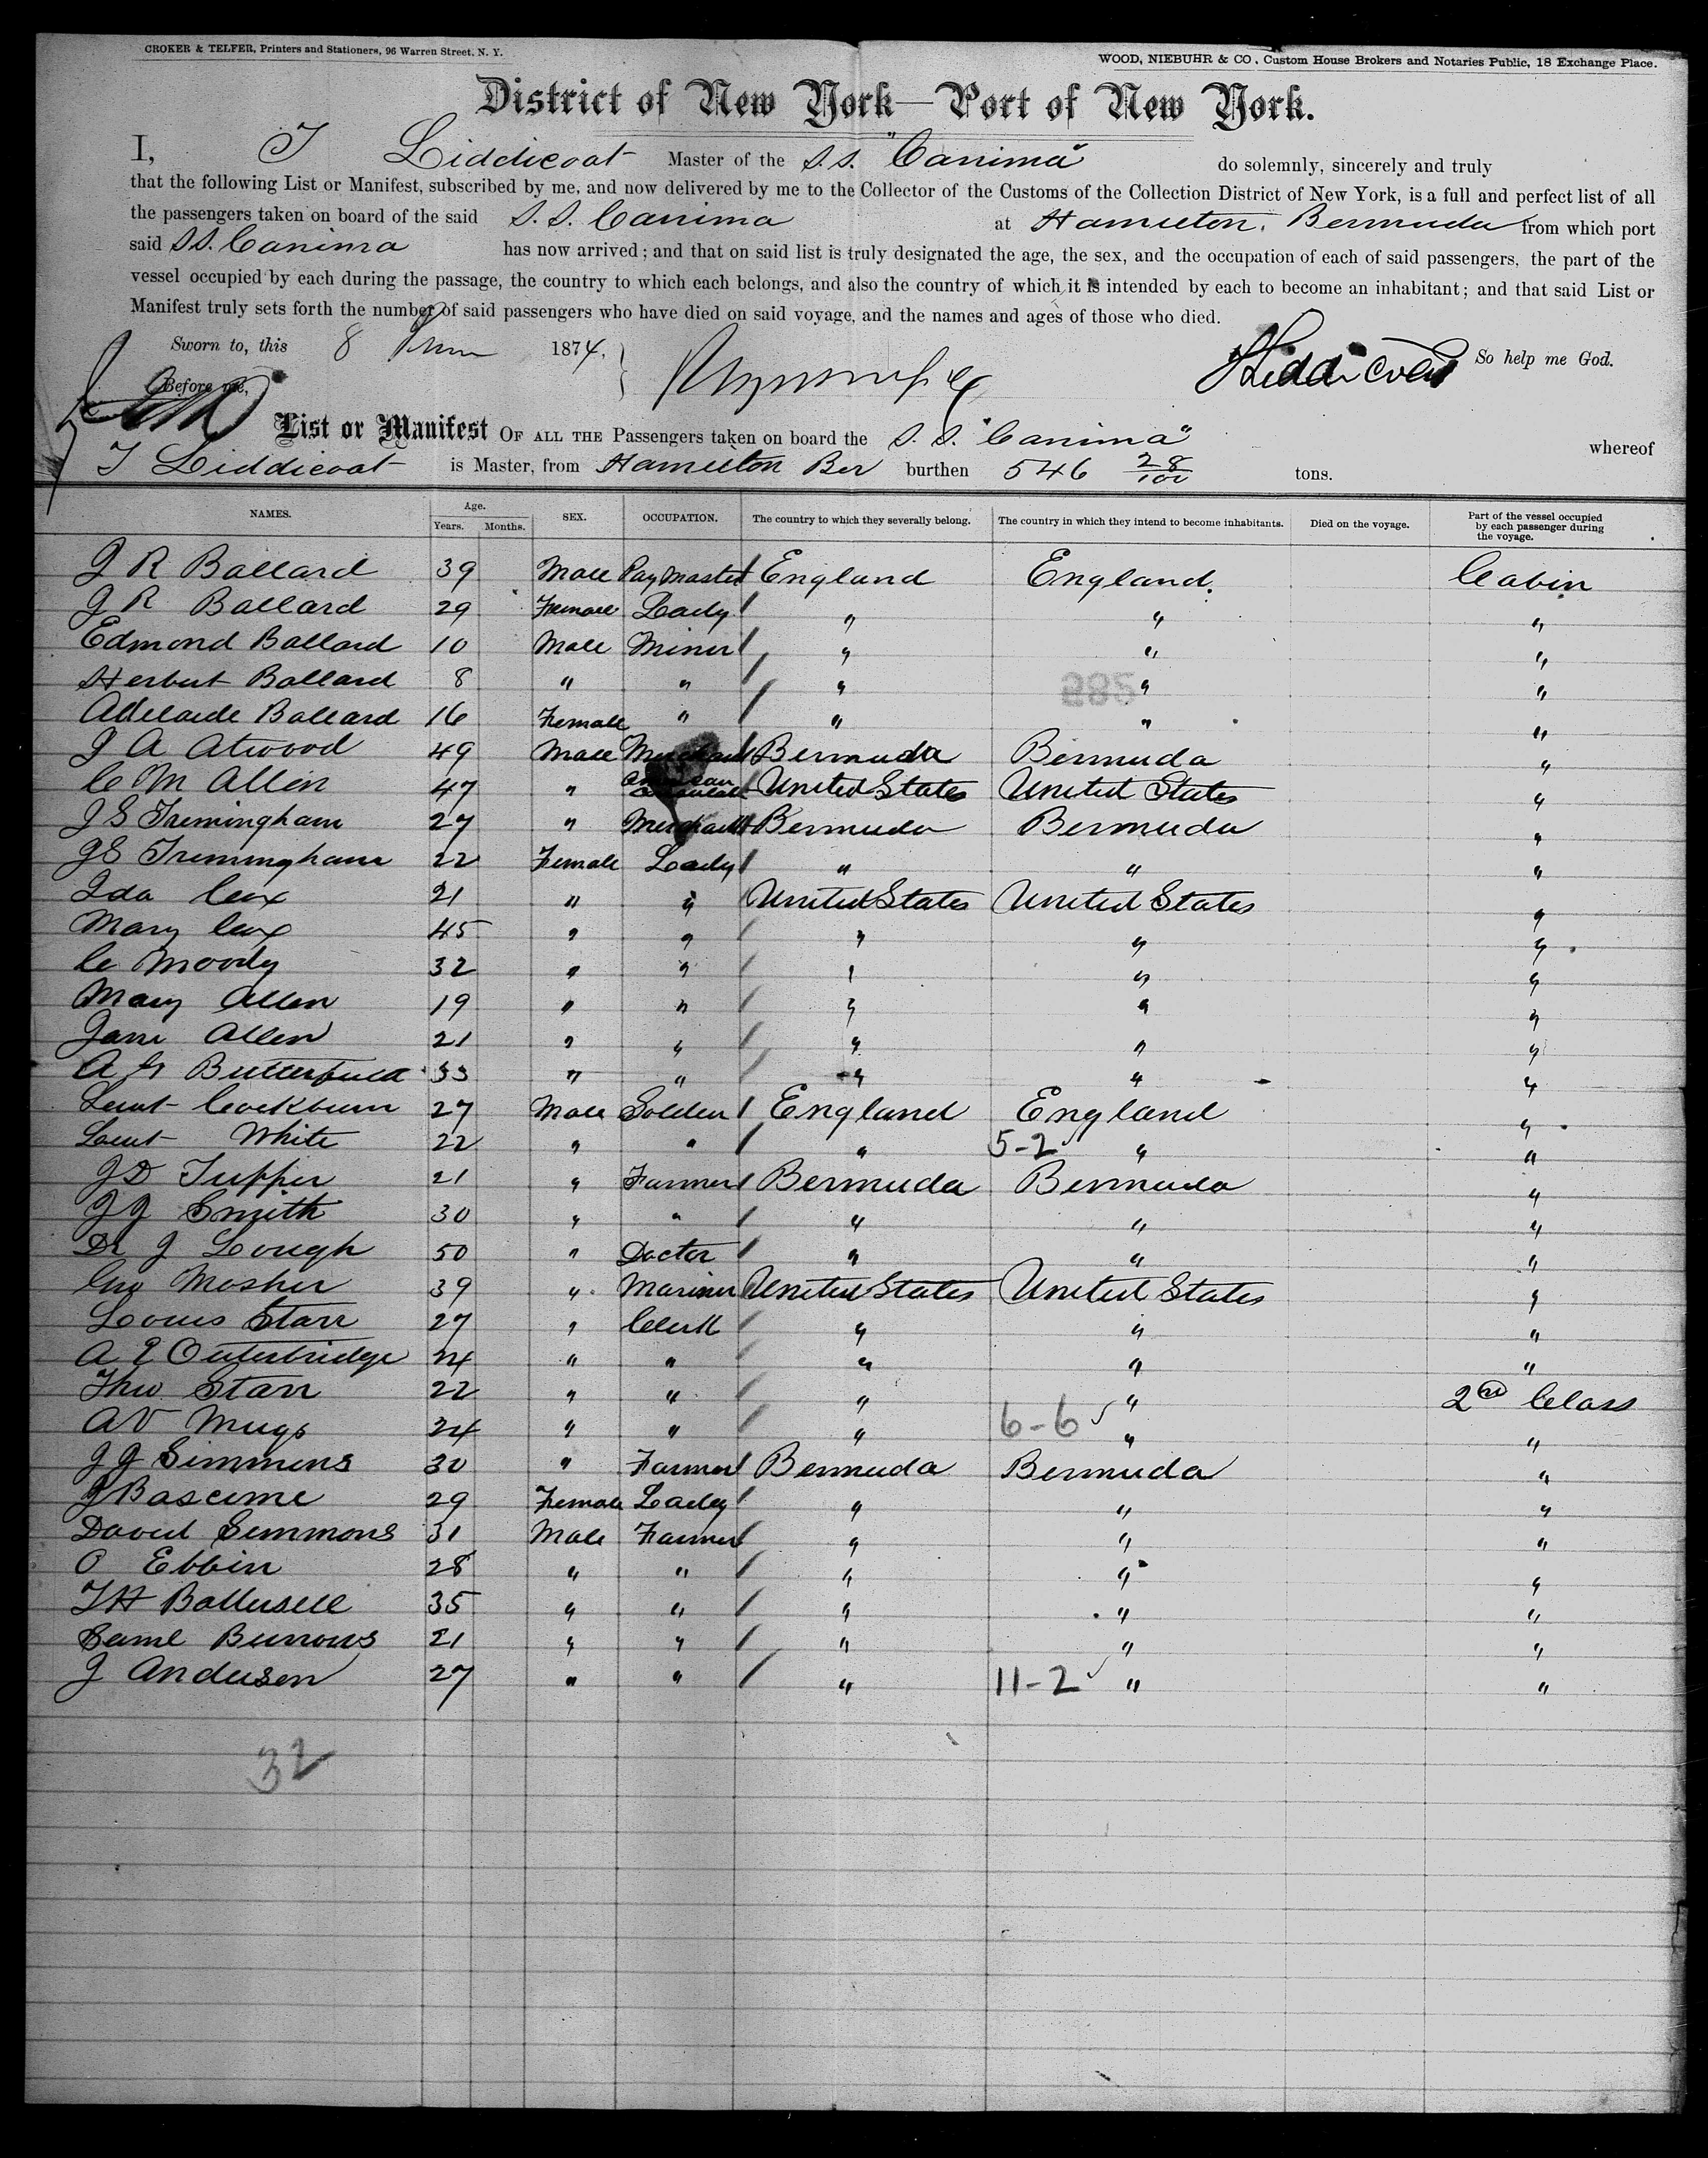 CROKER & TELFER, Printers and Stationers, 96 Warren Street, N. Y.
WOOD, NIEBUHR & CO., Custom House Brokers and Notaries Public, 18 Exchange Place.
District of New York—Port of New York.
I, J Liddicoat Master of the S.S. "Canima" do solemnly, sincerely and truly
that the following List or Manifest, subscribed by me, and now delivered by me to the Collector of the Customs of the Collection District of New York, is a full and perfect list of all
the passengers taken on board of the said S. S. Canima at Hamilton, Bermuda from which port
said S.S. Canima has now arrived; and that on said list is truly designated the age, the sex, and the occupation of each of said passengers, the part of the
vessel occupied by each during the passage, the country to which each belongs, and also the country of which it is intended by each to become an inhabitant; and that said List or
Manifest truly sets forth the number of said passengers who have died on said voyage, and the names and ages of those who died.
Sworn to, this 8 1874, So help me God.
Before me, J Liddicoat
List or Manifest OF ALL THE Passengers taken on board the S. S. "Canima" whereof
J Liddicoat is Master, from Hamilton Ber burthen 546 28/100 tons.
NAMES. Age. Years. Months. SEX. OCCUPATION. The country to which they severally belong. The country in which they intend to become inhabitants. Died on the voyage. Part of the vessel occupied by each passenger during the voyage.
J R Ballard 39 Male Pay Master England England. Cabin
J R Ballard 29 Female Lady " " "
Edmond Ballard 10 Male Minor " " "
Herbert Ballard 8 " " " " "
Adelaide Ballard 16 Female " " " "
J A Atwood 49 Male Merchant Bermuda Bermuda "
C M Allen 47 " American United States United States "
J S Trimingham 27 " Merchant Bermuda Bermuda "
J S Trimingham 22 Female Lady " " "
Ida Cox 21 " " United States United States "
Mary Cox 45 " " " " "
C Moody 32 " " " " "
Mary Allen 19 " " " " "
Jane Allen 21 " " " " "
A G Butterfield 33 " " " " "
Lieut Cockburn 27 Male Soldier England England "
Lieut White 22 " " " 5-2 " "
J D Tupper 21 " Farmer Bermuda Bermuda "
J J Smith 30 " " " " "
Dr J Lough 50 " Doctor " " "
Geo Mosher 39 " Mariner United States United States "
Louis Starr 27 " Clerk " " "
A E Outerbridge 24 " " " " "
Theo Starr 22 " " " " 2nd Class
A V 24 " " " 6-6 " "
J J Simmons 30 " Farmer Bermuda Bermuda "
J Bascome 29 Female Lady " " "
David Simmons 31 Male Farmer " " "
O Ebbin 28 " " " " "
T H 35 " " " " "
Saml Burrows 21 " " " " "
J Anderson 27 " " " 11-2 " "
32